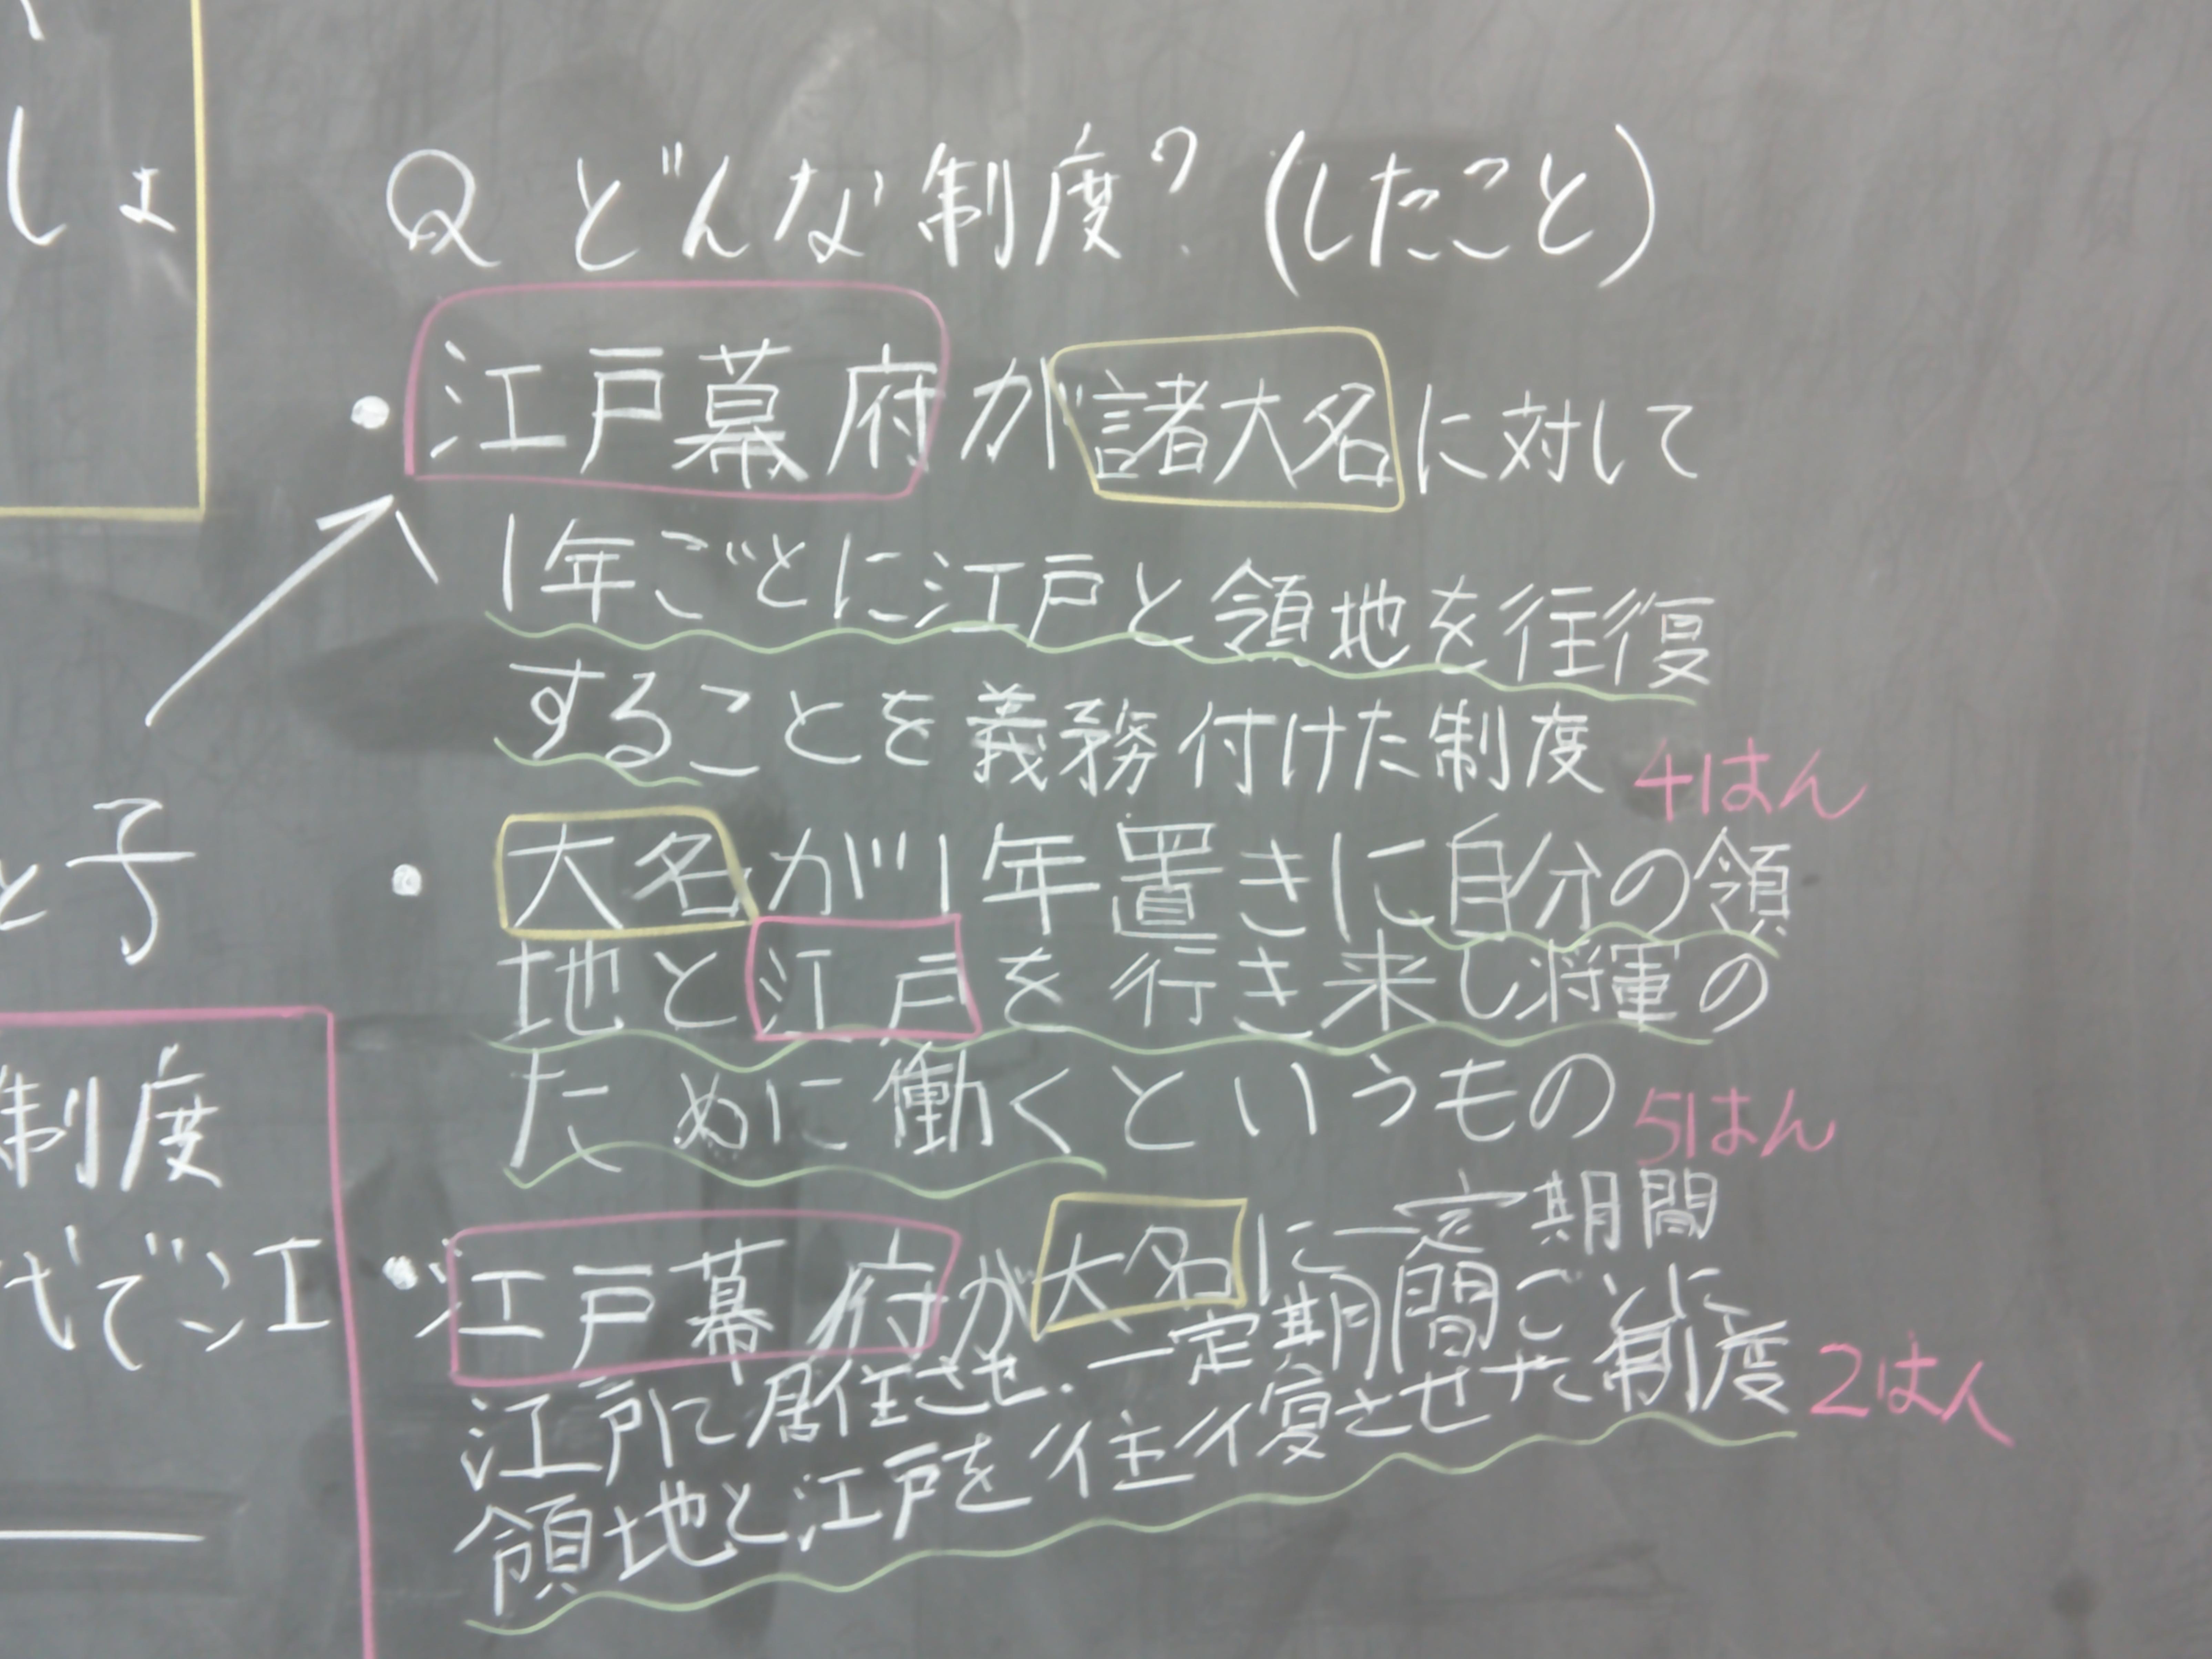 しょ
と子
制度
代で江
Q どんな制度?(したこと)
・江戸幕府が諸大名に対して
1年ごとに江戸と領地を往復
することを義務付けた制度 4はん
・大名が1年置きに自分の領
地と江戸を行き来し将軍の
ために働くというもの 5はん
・江戸幕府が大名に一定期間
江戸に居住させ.一定期間ごとに
領地と江戸を往復させた制度 2はん